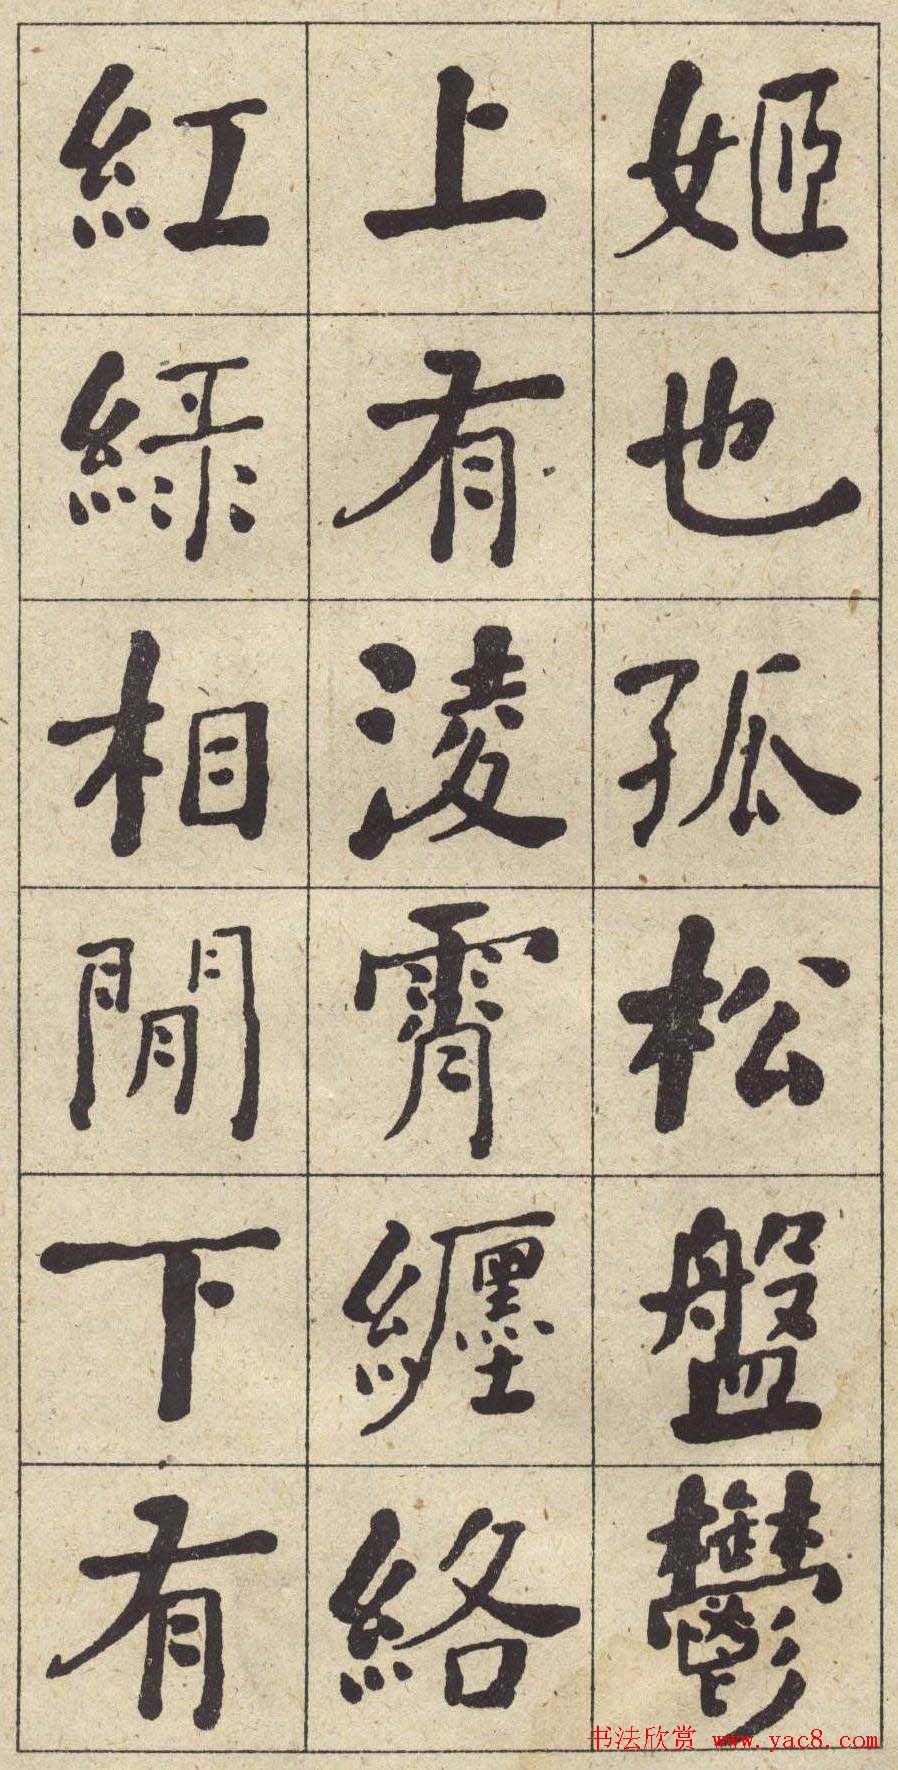 姬也孤松盤鬱
上有淩霄纏絡
紅綠相間下有
书法欣赏 www.yac8.com